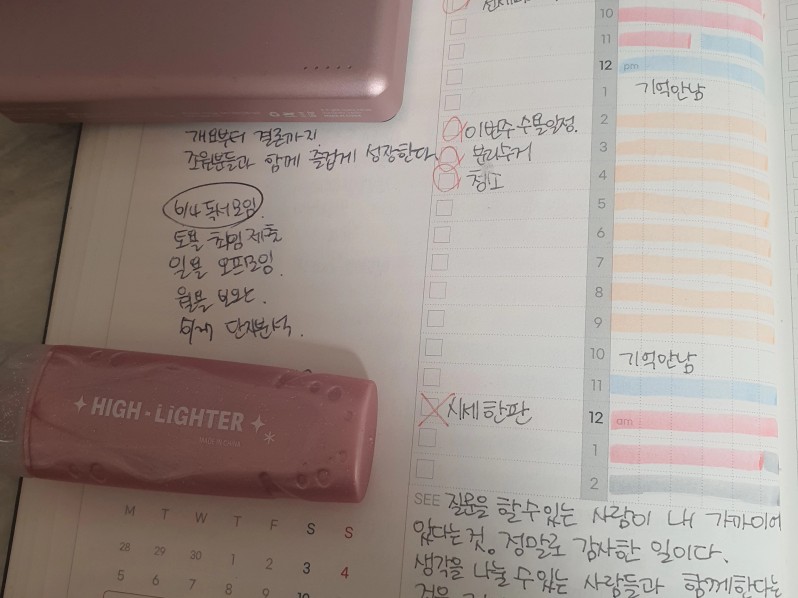 개요부터 결론까지.
조원분들과 함께 즐겁게 성장한다.
6/4 독서모임.
토욜 최임제출
일욜 오프모임.
월욜
단지분석.
HIGH-LiGHTER
MADE IN CHINA
M T W T F S S
28 29 30 1 2 3 4
5 6 7 8 9 10
이번주 수욜일정.
분리수거
청소
시세한판
10
11
12 pm
1 기억안남
2
3
4
5
6
7
8
9
10 기억안남
11
12 am
1
2
SEE 질문을 할 수 있는 사람이 내 가까이에
있다는 것. 정말로 감사한 일이다.
생각을 나눌 수 있는 사람들과 함께한다는
것은